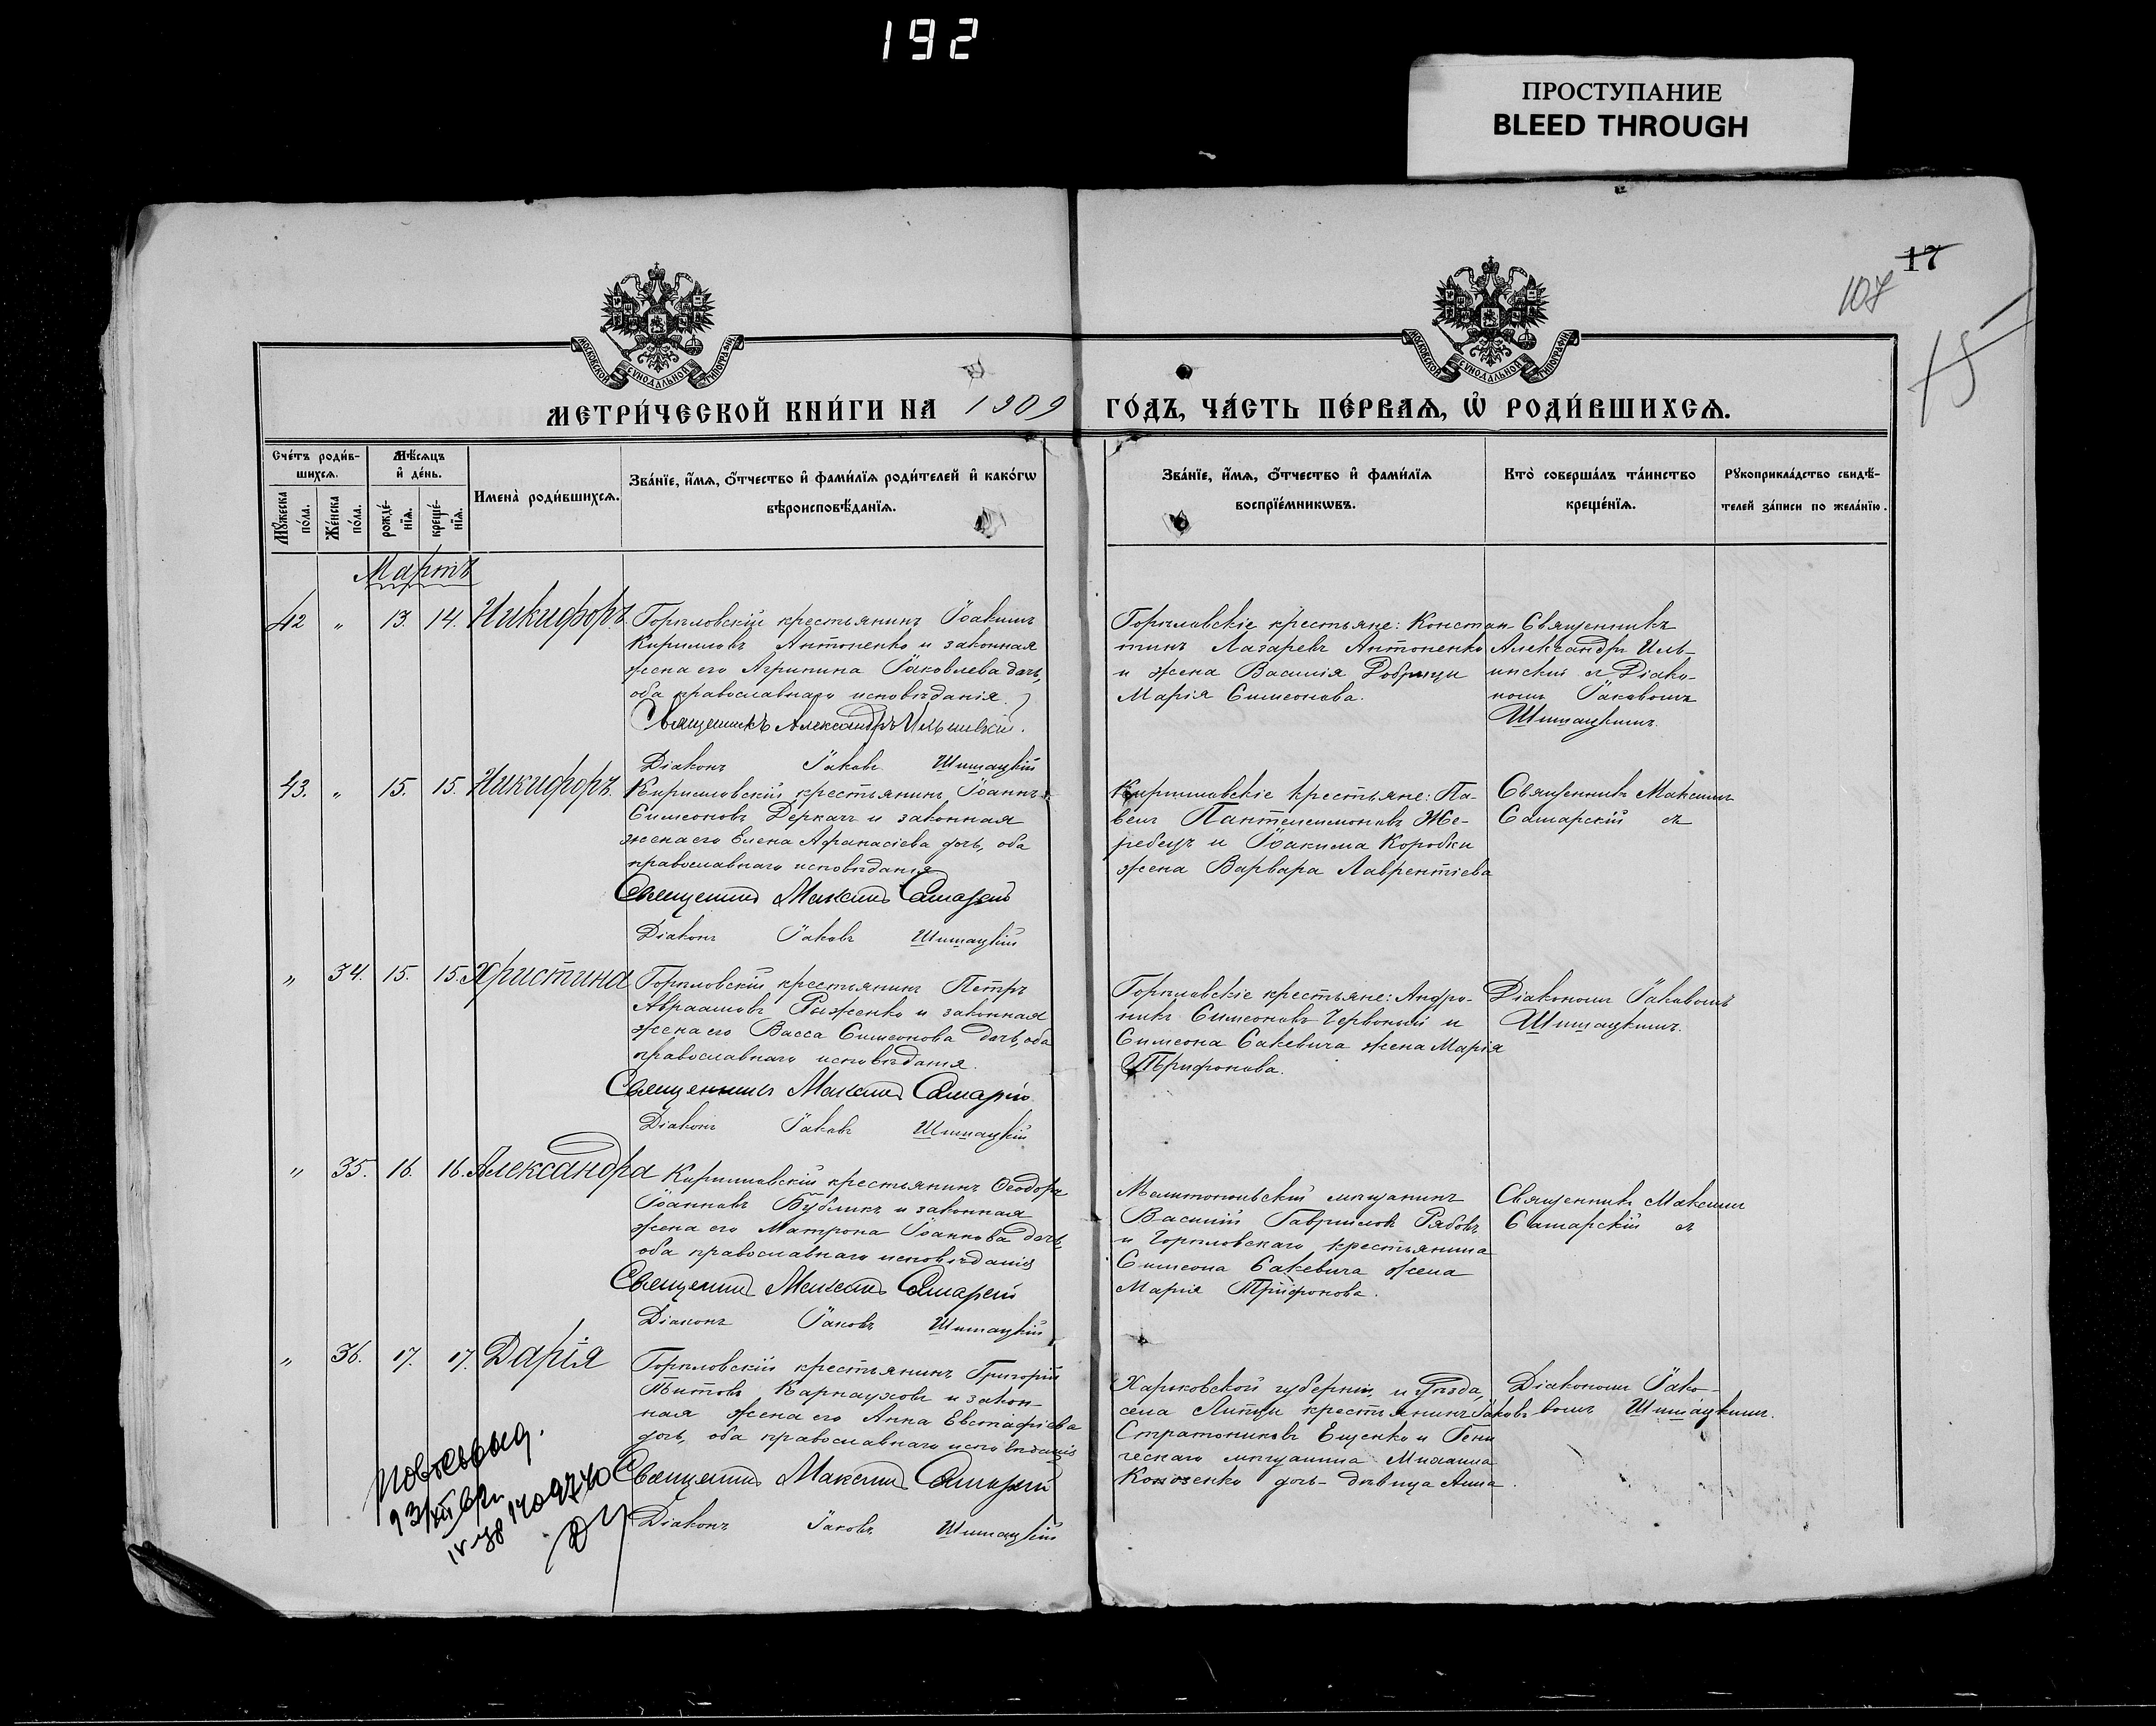 192
ПРОСТУПАНИЕ
BLEED THROUGH
17
107
15
МОСКОВСКОЙ СУНОДАЛЬНОЙ ТИПОГРАФІИ
МОСКОВСКОЙ СУНОДАЛЬНОЙ ТИПОГРАФІИ
МЕТРИ́ЧЕСКОЙ КНИ́ГИ НА 1909 ГО́ДЪ, ЧА́СТЬ ПЕ́РВАѦ, Ѡ҆ РОДИ́ВШИХСѦ.
Сче́тъ роди́в-
шихсѧ.
Мꙋ́жеска по́ла.
Же́нска по́ла.
Мѣ́сѧцъ
и҆ де́нь.
рожде́-
нїѧ.
креще́-
нїѧ.
Имена̀ роди́вшихсѧ.
Зва́нїе, и҆́мѧ, ѻ҆́тчество и҆ фами́лїѧ роди́телей и҆ како́гѡ
вѣроисповѣ́данїѧ.
Зва́нїе, и҆́мѧ, ѻ҆́тчество и҆ фами́лїѧ
воспрїе́мникѡвъ.
Кто̀ соверша́лъ та́инство
креще́нїѧ.
Рꙋкоприкла́дство свидѣ́-
телей за́писи по жела́нїю.
Мартъ
42 „ 13. 14. Никифоръ.
Горѣловскій крестьянинъ Іоакимъ
Кирилловъ Антоненко и законная
жена его Агрипина Іаковлева дочь,
оба православнаго исповѣданія.
Священникъ Александръ Ильинскій.
Діаконъ Іаковъ Шишацкій
Горѣловскіе крестьяне: Констан
тинъ Лазаревъ Антоненко
и жена Василія
Марія Симеонова.
Священникъ
Александръ Иль-
инскій съ Діако-
номъ Іаковомъ
Шишацкимъ.
43. „ 15. 15. Никифоръ.
Кирилловскій крестьянинъ Іоаннъ
Симеоновъ Деркачъ и законная
жена его Елена Афанасіева дочь, оба
православнаго исповѣданія
Священникъ Максимъ Самарскій
Діаконъ Іаковъ Шишацкій
Кирилловскіе крестьяне: Па-
велъ Пантелеимоновъ Же-
ребецъ и Іоакима Коробки
жена Варвара Лаврентіева
Священникъ Максимъ
Самарскій съ
„ 34. 15. 15. Христина
Горѣловскій крестьянинъ Петръ
Авраамовъ Рыженко и законная
жена его Васса Симеонова дочь, оба
православнаго исповѣданія.
Священникъ Максимъ Самарскій
Діаконъ Іаковъ Шишацкій
Горѣловскіе крестьяне: Андро-
никъ Симеоновъ Червоный и
Симеона Сакевича жена Марія
Трифонова.
Діакономъ Іаковомъ
Шишацкимъ.
„ 35. 16. 16. Александра
Кирилловскій крестьянинъ Ѳеодоръ
Іоанновъ Бубликъ и законная
жена его Матрона Іоаннова дочь,
оба православнаго исповѣданія
Священникъ Максимъ Самарскій
Діаконъ Іаковъ Шишацкій
Мелитопольскій мѣщанинъ
Василій Гавриловъ Рябовъ
и Горѣловскаго крестьянина
Симеона Сакевича жена
Марія Трифонова.
Священникъ Максимъ
Самарскій съ
„ 36. 17. 17. Дарія
Горѣловскій крестьянинъ Григорій
Титовъ Карнауховъ и закон-
ная жена его Анна Евстафіева
дочь, оба православнаго исповѣданія
Священникъ Максимъ Самарскій
Діаконъ Іаковъ Шишацкій
Харьковской губерніи, и уѣзда,
села Липцы крестьянинъ Іаковъ
Стратониковъ Ещенко и Гени
ческаго мѣщанина Михаила
дочь - дѣвица Анна.
Діакономъ Іако-
вомъ Шишацкимъ.